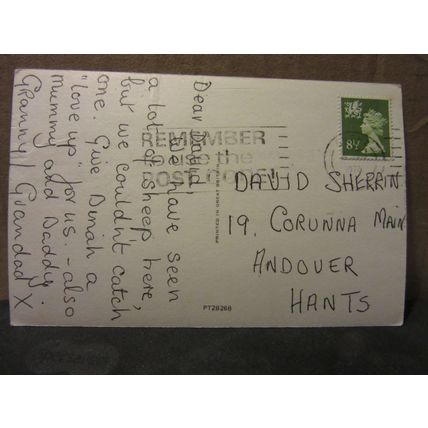 Dear David,
We have seen
a lot of sheep here,
but we couldn't catch
one. Give Dinah a
"love up" for us. - also
mummy and Daddy.
Granny / Grandad X
REMEMBER
the
POST
PRINTED IN GREAT
PT28268
8½
DAVID SHERRIN
19, CORUNNA MAIN
ANDOVER
HANTS